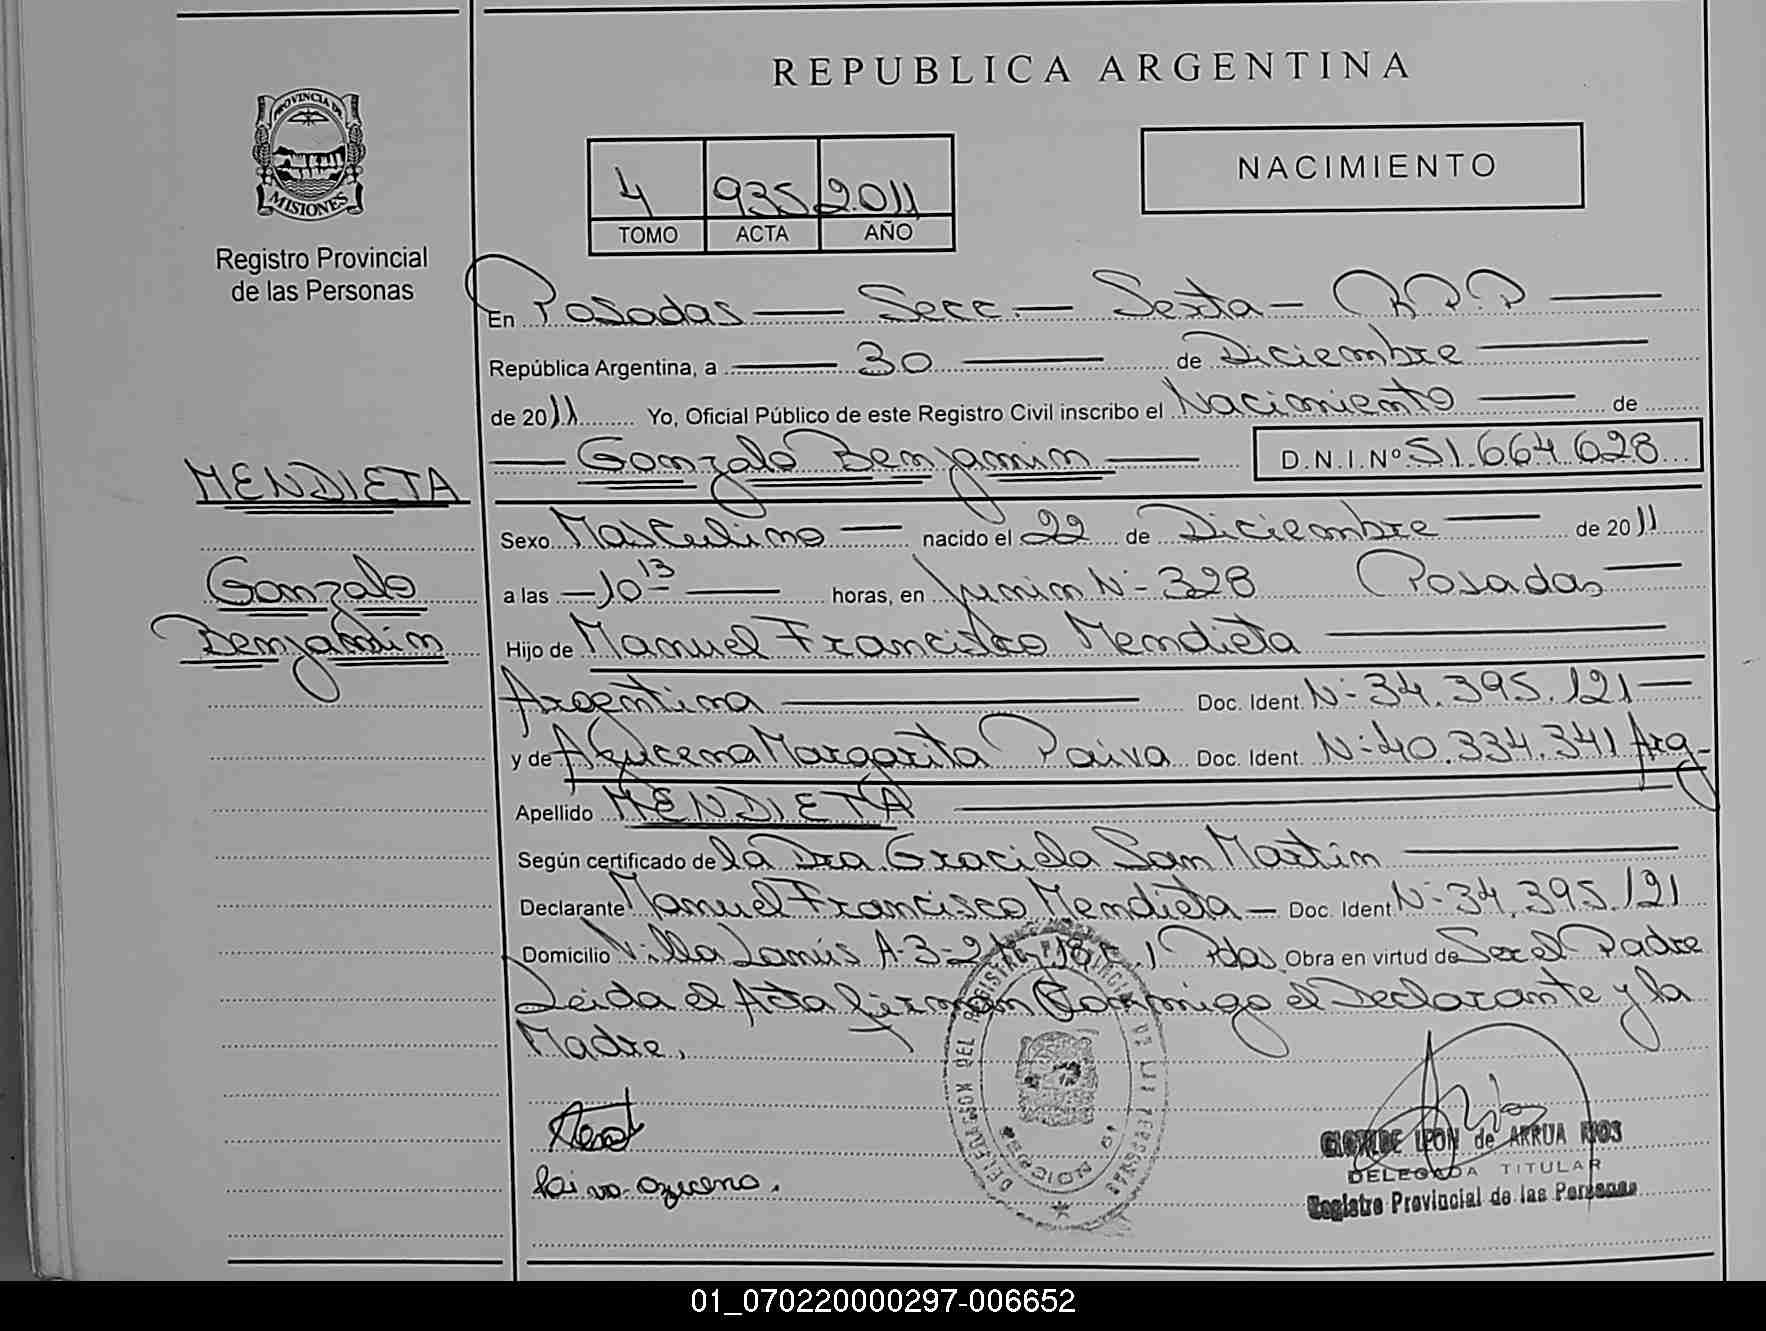 REPUBLICA ARGENTINA
PROVINCIA DE
MISIONES
Registro Provincial
de las Personas
NACIMIENTO
4 935 2011
TOMO ACTA AÑO
En Posadas — Secc. — Sexta — R.P.P —
República Argentina, a — 30 — de Diciembre —
de 2011 Yo, Oficial Público de este Registro Civil inscribo el Nacimiento — de
— Gonzalo Benjamin — D.N.I.Nº 51.664.628
MENDIETA
Gonzalo
Benjamin
Sexo Masculino — nacido el 22 de Diciembre — de 2011
a las — 10 13 — horas, en Junin N- 328 Posadas —
Hijo de Manuel Francisco Mendieta —
Argentina — Doc. Ident. N- 34.395.121 —
y de Azucena Margarita Paiva Doc. Ident. N- 40.334.341 Arg-
Apellido MENDIETA —
Según certificado de la Dra Graciela San Martin —
Declarante Manuel Francisco Mendieta — Doc. Ident. N- 34.395.121
Domicilio Villa Lanús A-3-2 Pdas. Obra en virtud de Ser el Padre
Leida el Acta firman Conmigo el Declarante y la
Madre.
Paiva Azucena.
DELEGACION DEL
CLOTILDE LEON de ARRUA RIOS
DELEGADA TITULAR
Registro Provincial de las Personas
01_070220000297-006652